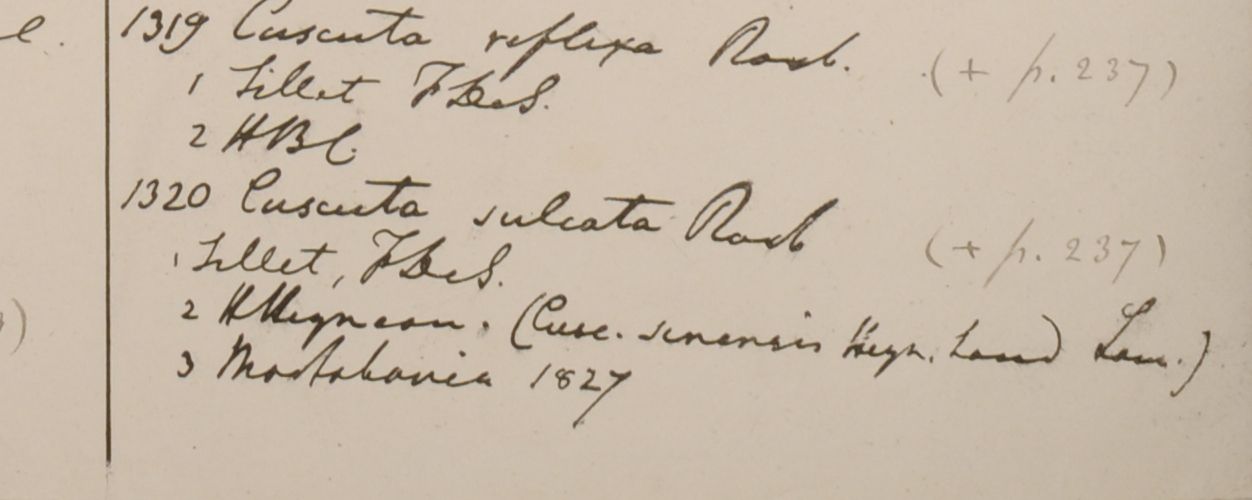 e.
1319 Cuscuta reflexa Roxb. (+ p. 237)
1 Sillet F DeS.
2 HBC
1320 Cuscuta sulcata Roxb (+ p. 237)
1 Sillet, F DeS.
2 H Heyneau. (Cusc. sinensis Heyn. Lam.)
3 Martabania 1827
)